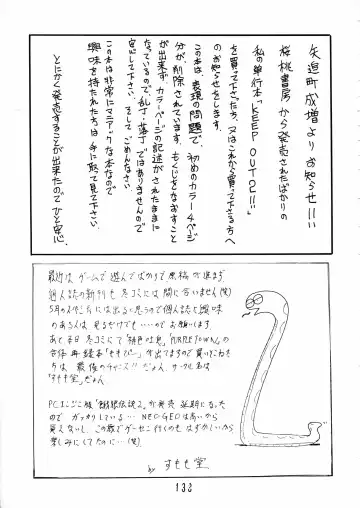 矢追町成増よりお知らせ!!
桜桃書房から発売されたばかりの
私の単行本「KEEP OUT!!!」
を買って下さった方、又はこれから買って下さる方へ
のお知らせをします。
この本は、表現の問題で、初めのカラー4ページ
分が、削除されています。もくじをなおすこと
が出来ず、カラーページの記述がされたままに
なっているので、乱丁・落丁ではありませんので
安心して下さい。そして、ごめんなさい。
この本は非常にマニアックな本なので
興味を持たれた方は手に取って見て下さい。
とにかく発売することが出来たのでひと安心。
最近はゲームで遊んでばかりで原稿が進まず
個人誌の新刊も冬コミには間に合いません(笑)
5月の
には出ると思うので個人誌に興味
のある人は見るだけでも…のでお願いします。
あと本日冬コミで「
」、「PURPLE TOWN」の
合体再録本「
」が出てますので買いそこねた方
は最後のチャンス!!だよん。サークル名は
「すもも堂」だよん。
PCエンジン版「餓狼伝説2」が発売延期になった
のでガッカリしている… NEO・GEOは高いから
買えないし、この歳でゲーセン行くのもはずかしいから
楽しみにしてたのに…(笑)
by すもも堂
132